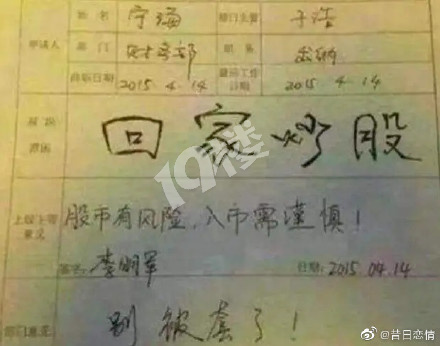 姓名 宁海 部门主管 于浩
申请人 部门 财务部 职务 出纳
申请日期 2015.4.14 最后工作日期 2015.4.14
回家炒股
股市有风险,入市需谨慎!
签字: 李明军 日期: 2015.04.14
别被套了!
部门意见
19楼
@昔日恋情